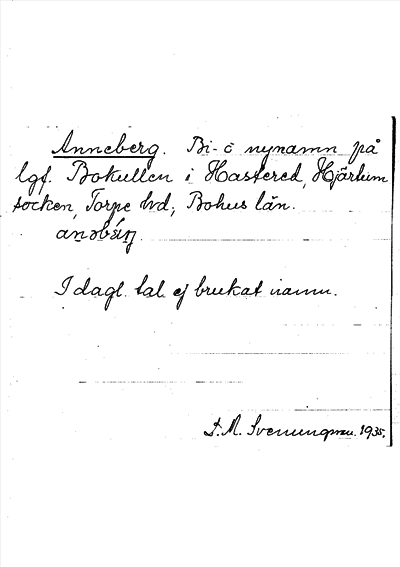 Anneberg. Bi- o nynamn på
lgf. Bokullen i Hastered, Hjärtum
socken, Torpe hd, Bohus län.
anəbæ̀rj
I dagl. tal ej brukat namn.
S. M. Svenungsson. 1935.